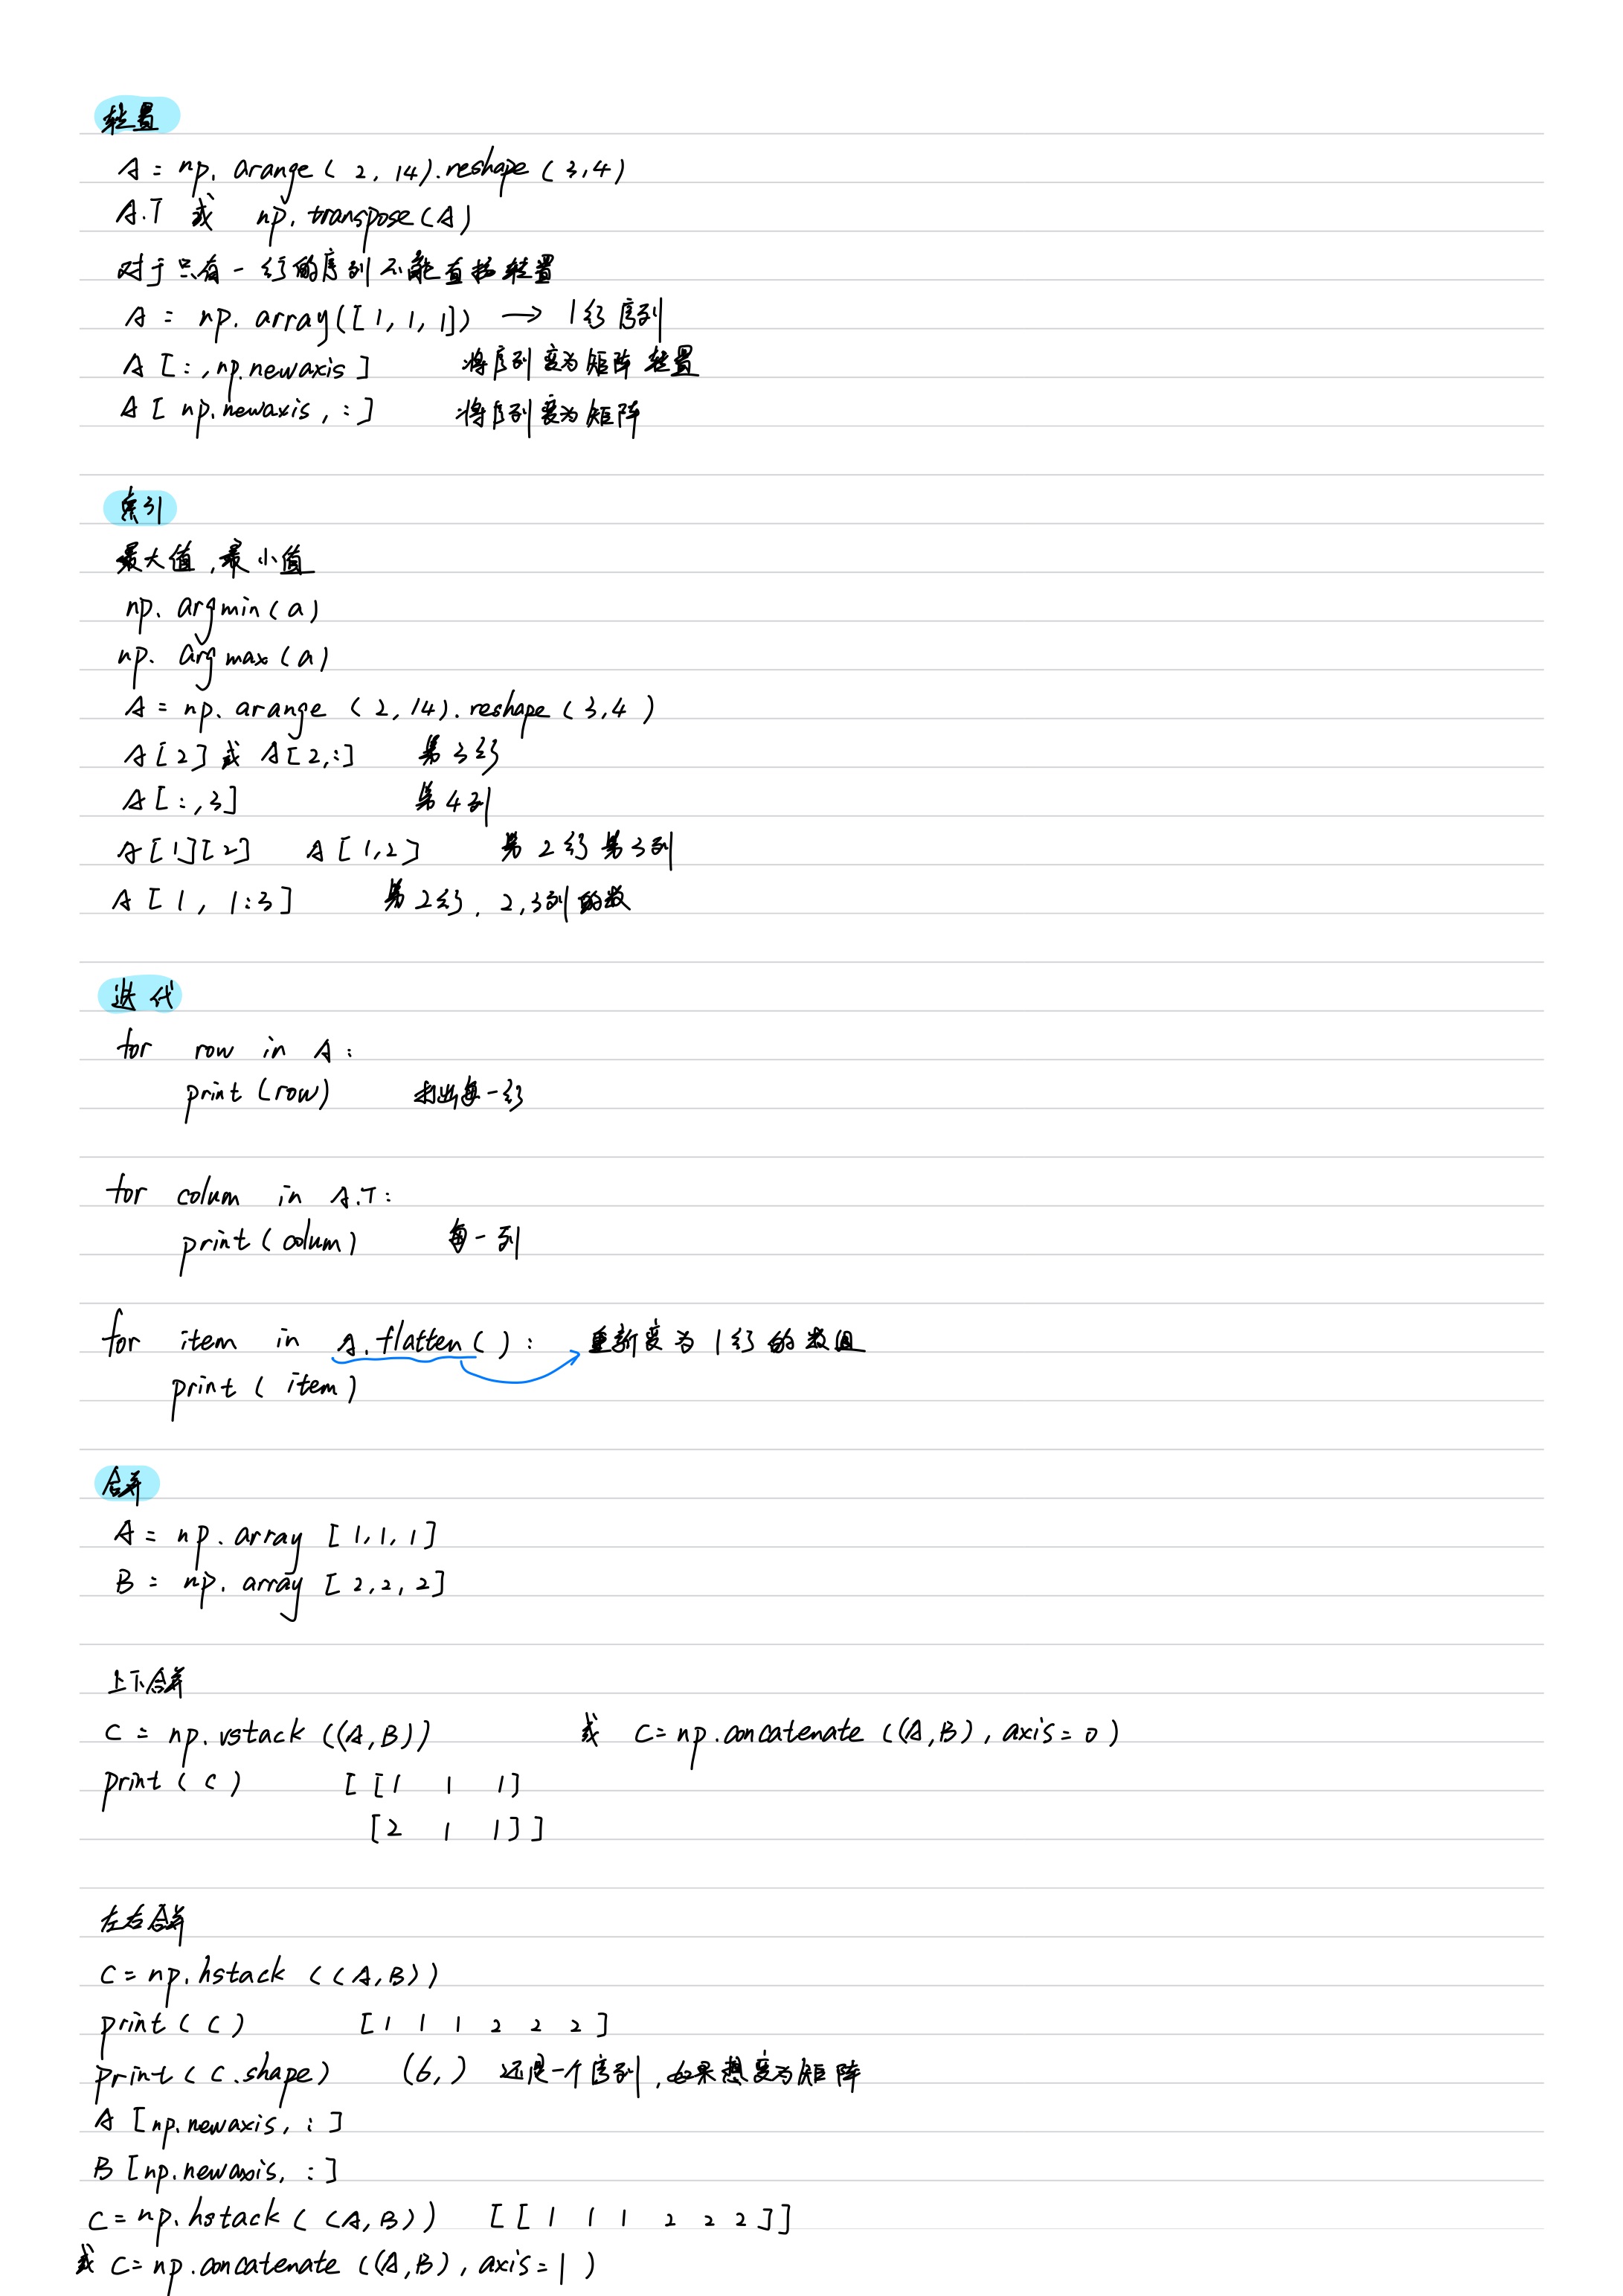 转置
A = np. arange ( 2, 14). reshape ( 3,4)
A.T 或 np. transpose(A)
对于只有一行的序列不能直接转置
A = np. array([1, 1, 1]) → 1行序列
A [:, np.newaxis] 将序列变为矩阵 转置
A [ np.newaxis, :] 将序列变为矩阵
索引
最大值,最小值
np. argmin(a)
np. argmax(a)
A = np. arange ( 2,14). reshape ( 3,4 )
A[2] 或 A[2,:] 第3行
A [:,3] 第4列
A[1][2] A[1,2] 第2行第3列
A[1, 1:3] 第2行, 2,3列的数
迭代
for row in A:
print (row) 打出每一行
for colum in A.T:
print (colum) 每一列
for item in A. flatten( ): 重新变为1行的数组
print ( item)
合并
A = np. array [1,1,1]
B = np. array [2,2,2]
上下合并
C = np. vstack ((A,B)) 或 C= np.concatenate ((A,B), axis=0)
print ( C) [ [1 1 1]
[2 1 1] ]
左右合并
C = np. hstack ((A,B))
print ( C) [1 1 1 2 2 2]
print ( C.shape) (6,) 还是一个序列,如果想变为矩阵
A [np.newaxis, :]
B [np.newaxis, :]
C = np. hstack ( (A,B)) [ [ 1 1 1 2 2 2]]
或 C= np.concatenate ((A,B), axis=1 )